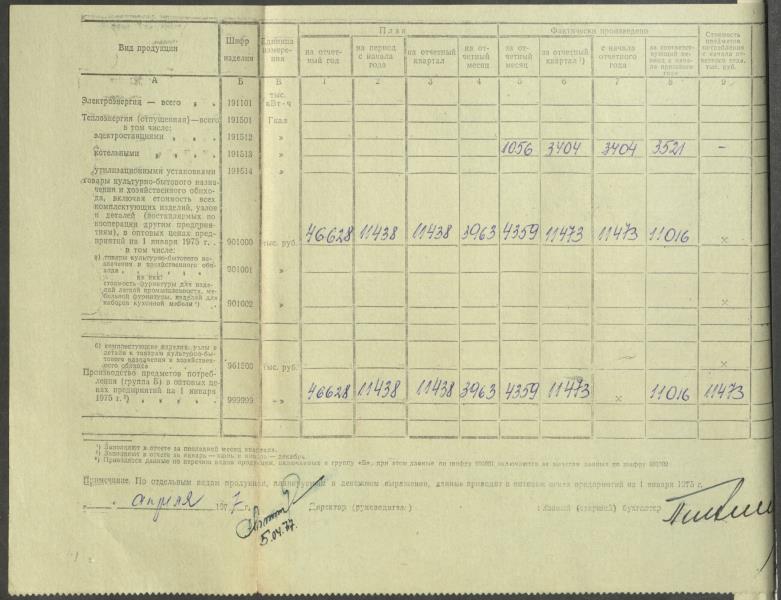 Вид продукции
Шифр изделия
Единица измерения
План
на отчетный год
на период с начала года
на отчетный квартал
на отчетный месяц
Фактически произведено
за отчетный месяц
за отчетный квартал ¹)
с начала отчетного года
за соответствующий период с начала прошлого года
Стоимость предметов потребления с начала отчетного года, тыс. руб.
А Б В 1 2 3 4 5 6 7 8 9
Электроэнергия — всего 191101 тыс. кВт·ч
Теплоэнергия (отпущенная) — всего 191501 Гкал
в том числе:
электростанциями 191512 »
котельными 191513 » 1056 3404 3404 3521 —
утилизационными установками 191514 »
товары культурно-бытового назна-
чения и хозяйственного обихо-
да, включая стоимость всех
комплектующих изделий, узлов
и деталей (поставляемых по
кооперации другим предприя-
тиям), в оптовых ценах пред-
приятий на 1 января 1975 г. 901000 тыс. руб. 46628 11438 11438 3963 4359 11473 11473 11016 ×
в том числе:
а) товары культурно-бытового на-
значения и хозяйственного оби-
хода 901001 »
из них:
стоимость фурнитуры для изде-
лий легкой промышленности, ме-
бельной фурнитуры, изделий для
наборов кухонной мебели 901002 » ×
б) комплектующие изделия, узлы и
детали к товарам культурно-бы-
тового назначения и хозяйствен-
ного обихода тыс. руб. ×
Производство предметов потреб-
ления (группа Б) в оптовых це-
нах предприятий на 1 января
1975 г. ³) 999999 » 46628 11438 11438 3963 4359 11473 × 11016 11473
¹) Заполняют в отчете за последний месяц квартала.
²) Заполняют в отчете за январь — июнь и январь — декабрь.
Примечание. По отдельным видам продукции, планируемым в денежном выражении, данные приводят в оптовых ценах предприятий на 1 января 1975 г.
апреля 1977 г.
Директор (руководитель)
Главный (старший) бухгалтер
5.04.77.